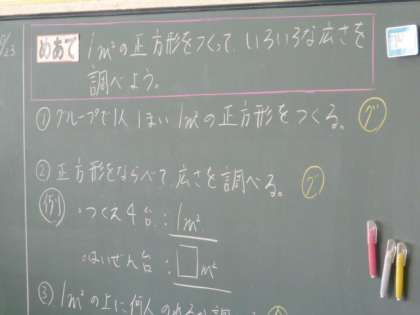 めあて 1m²の正方形をつくって、いろいろな広さを
調べよう。
① グループで1人1まい1m²の正方形をつくる。 グ
② 正方形をならべて、広さを調べる。 グ
例 ・つくえ4台:1m²
・はいぜん台:□m²
③ 1m²の上に何人のれるか調